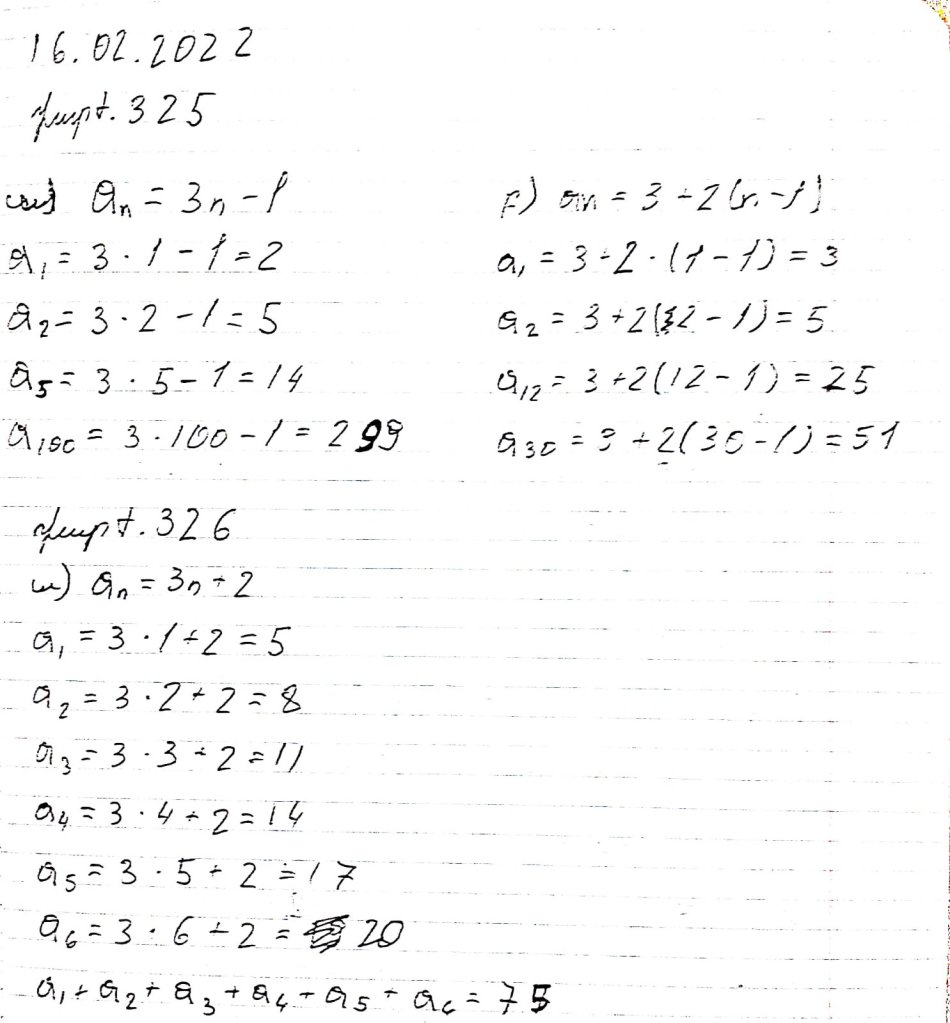 16.02.2022
վարժ. 325
ա) aₙ = 3n - 1
a₁ = 3 · 1 - 1 = 2
a₂ = 3 · 2 - 1 = 5
a₅ = 3 · 5 - 1 = 14
a₁₀₀ = 3 · 100 - 1 = 299
բ) aₙ = 3 + 2(n - 1)
a₁ = 3 + 2 · (1 - 1) = 3
a₂ = 3 + 2(2 - 1) = 5
a₁₂ = 3 + 2(12 - 1) = 25
a₃₀ = 3 + 2(30 - 1) = 51
վարժ. 326
ա) aₙ = 3n + 2
a₁ = 3 · 1 + 2 = 5
a₂ = 3 · 2 + 2 = 8
a₃ = 3 · 3 + 2 = 11
a₄ = 3 · 4 + 2 = 14
a₅ = 3 · 5 + 2 = 17
a₆ = 3 · 6 + 2 = 20
a₁ + a₂ + a₃ + a₄ + a₅ + a₆ = 75